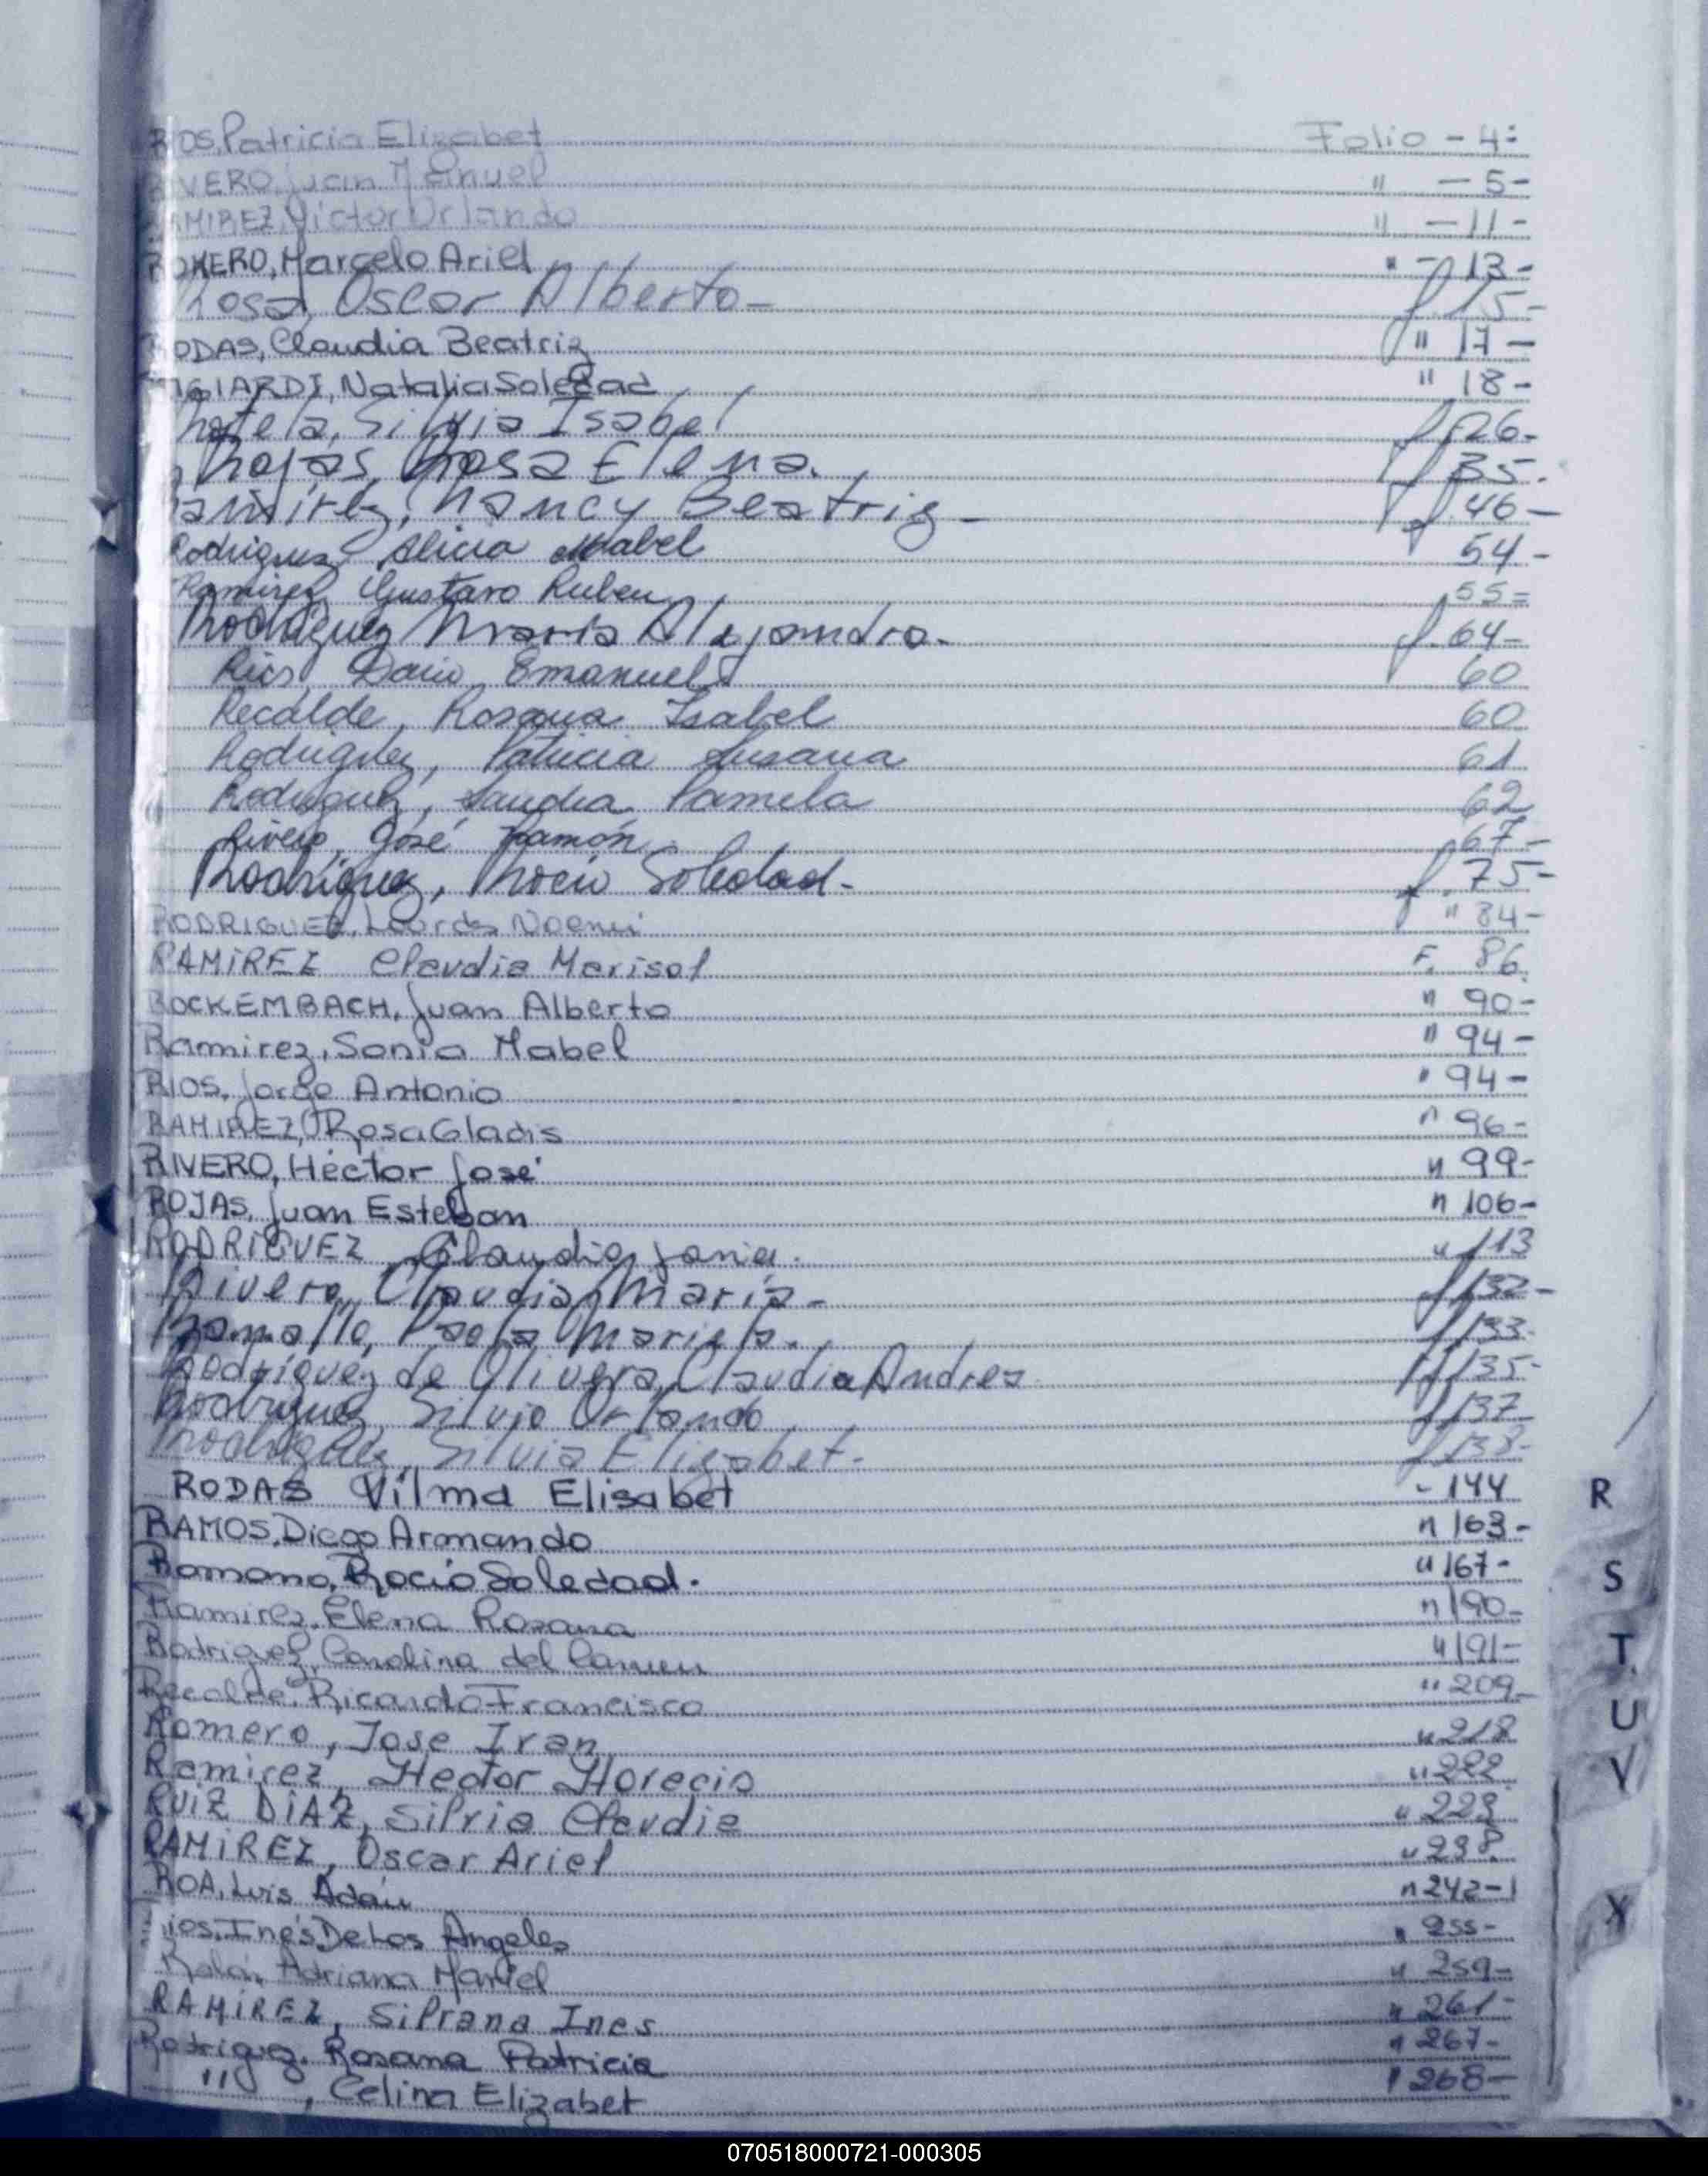 RIOS, Patricia Elizabet Folio - 4-
RIVERO, Juan Manuel " - 5-
RAMIREZ, Victor Orlando " - 11 -
ROMERO, Marcelo Ariel " - 13 -
Rosa, Oscar Alberto - f. 15 -
RODAS, Claudia Beatriz " 17 -
Natalia Soledad " 18 -
Silvia Isabel f 26 -
Rojas, Rosa Elena. f 35.
Ramirez, Nancy Beatriz - f. 46 -
Rodriguez, Alicia Mabel 54. -
Ramirez Gustavo Ruben 55 =
Rodriguez Maria Alejandra. f. 64 -
Rios, Dario Emanuel 60
Recalde, Rosana Isabel 60
Rodriguez, Patricia Susana 61
Rodriguez, Sandra Pamela 62
Rivero, José Ramón 67. -
Rodriguez, Rocio Soledad - f. 75 -
RODRIGUEZ, Lourdes Noemi " 84 -
RAMIREZ Claudia Marisol F. 86
ROCKEMBACH, Juan Alberto " 90 -
Ramirez, Sonia Mabel " 94 -
RIOS, Jorge Antonio " 94 -
RAMIREZ, Rosa Gladis " 96 -
RIVERO, Héctor José " 99 -
ROJAS, Juan Esteban " 106 -
RODRIGUEZ, Claudia " 113
Rivero, Claudia Maria - f 132 -
Paola Mariela. f 133.
Rodriguez de Olivera, Claudia Andrea f 135 -
Rodriguez, Silvio Orlando f 137
Rodriguez, Silvia Elizabet - f 138 -
RODAS Vilma Elisabet - 144
RAMOS, Diego Armando " 163 -
Romano, Rocio Soledad. " 167 -
Ramirez, Elena Rosana " 190 -
Rodriguez, Carolina del Carmen " 191 -
Recalde, Ricardo Francisco " 209 -
Romero, Jose Ivan " 218
Ramirez, Hector Horacio " 222
RUIZ DIAZ, Silvia Claudia " 223
RAMIREZ, Oscar Ariel " 238
ROA, Luis Adán " 242 -
Rios, Inés De Los Angeles " 255 -
Adriana Mariel " 259 -
RAMIREZ, Silvana Ines " 261 -
Rodriguez, Rosana Patricia " 267 -
" , Celina Elizabet " 268 -
R
S
T
U
V
X
070518000721-000305